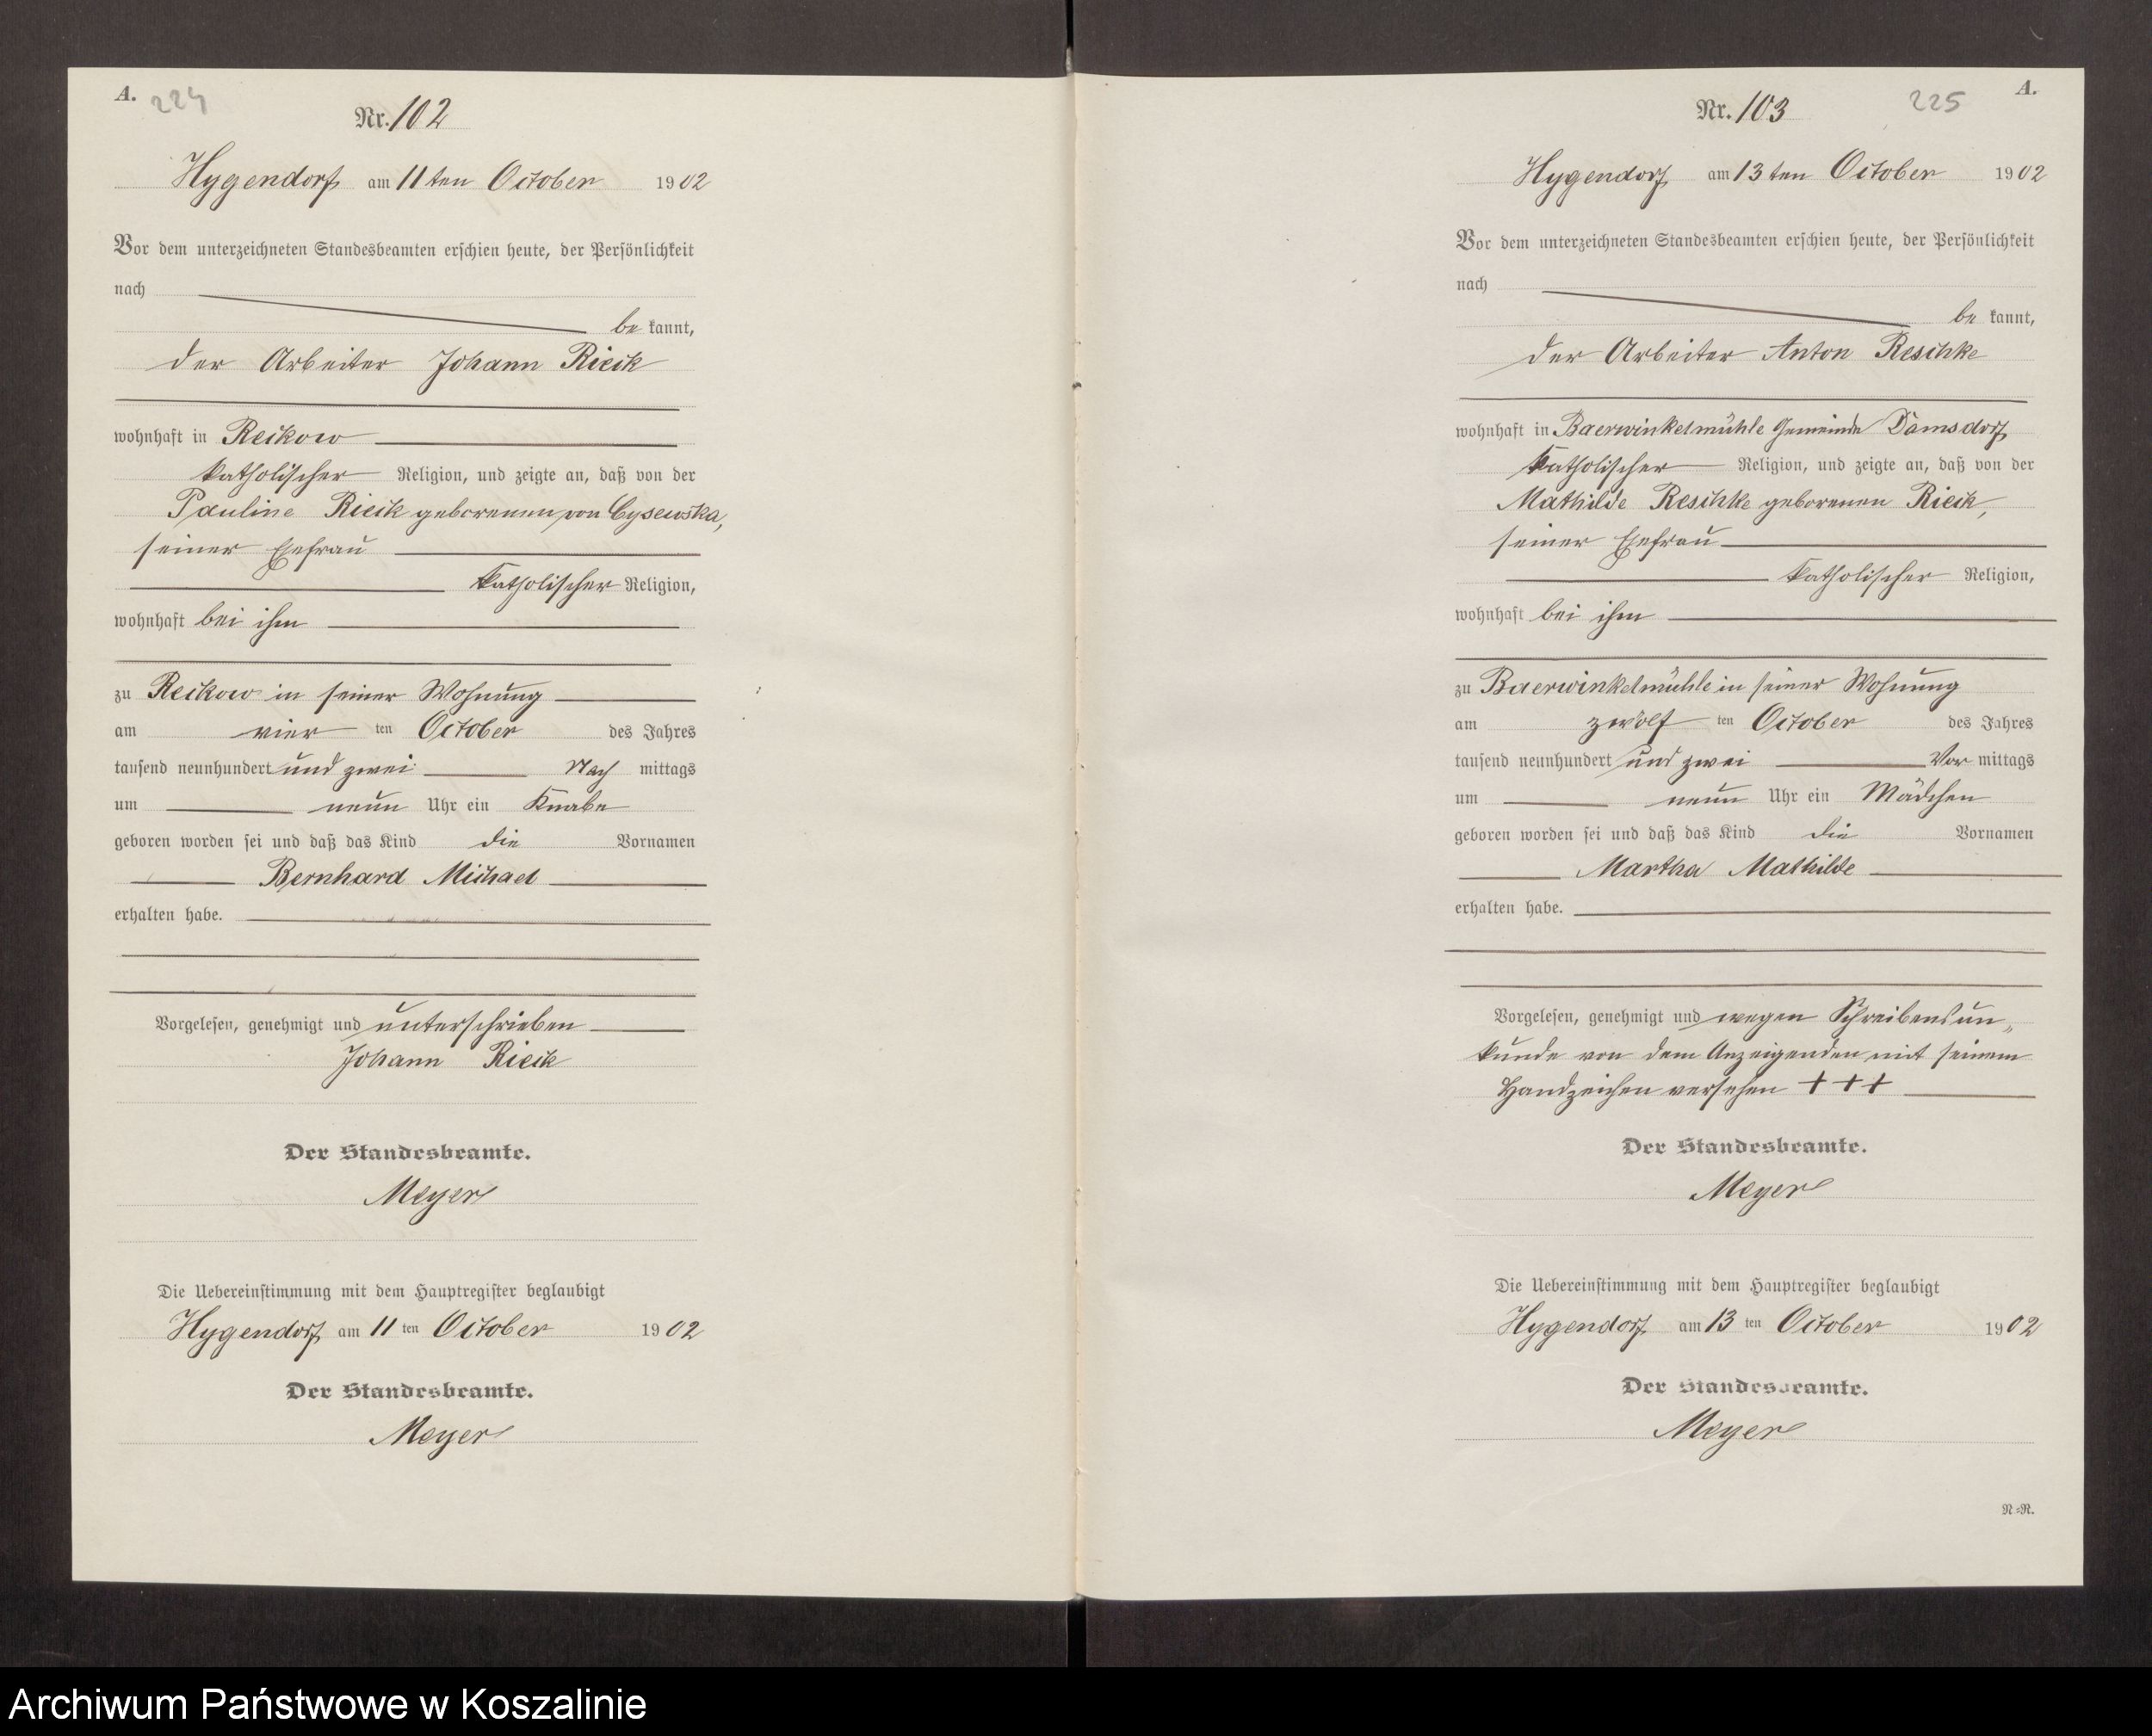 A. 224
Nr. 102
Hygendorf am 11 ten October 1902
Vor dem unterzeichneten Standesbeamten erschien heute, der Persönlichkeit
nach
be kannt,
der Arbeiter Johann Rieck
wohnhaft in Reckow
katholischer Religion, und zeigte an, daß von der
Pauline Rieck geborenen von Cysewska,
seiner Ehefrau
katholischer Religion,
wohnhaft bei ihm
zu Reckow in seiner Wohnung
am vier ten October des Jahres
tausend neunhundert und zwei Nach mittags
um neun Uhr ein Knabe
geboren worden sei und daß das Kind die Vornamen
Bernhard Michael
erhalten habe.
Vorgelesen, genehmigt und unterschrieben
Johann Rieck
Der Standesbeamte.
Meyer
Die Uebereinstimmung mit dem Hauptregister beglaubigt
Hygendorf am 11 ten October 1902
Der Standesbeamte.
Meyer
225 A.
Nr. 103
Hygendorf am 13 ten October 1902
Vor dem unterzeichneten Standesbeamten erschien heute, der Persönlichkeit
nach
be kannt,
der Arbeiter Anton Reschke
wohnhaft in Baerwinkelmühle Gemeinde Damsdorf
katholischer Religion, und zeigte an, daß von der
Mathilde Reschke geborenen Rieck,
seiner Ehefrau
katholischer Religion,
wohnhaft bei ihm
zu Baerwinkelmühle in seiner Wohnung
am zwölf ten October des Jahres
tausend neunhundert und zwei Vor mittags
um neun Uhr ein Mädchen
geboren worden sei und daß das Kind die Vornamen
Martha Mathilde
erhalten habe.
Vorgelesen, genehmigt und wegen Schreibensun„
kunde von dem Anzeigenden mit seinem
Handzeichen versehen + + +
Der Standesbeamte.
Meyer
Die Uebereinstimmung mit dem Hauptregister beglaubigt
Hygendorf am 13 ten October 1902
Der Standesbeamte.
Meyer
N=R.
Archiwum Państwowe w Koszalinie